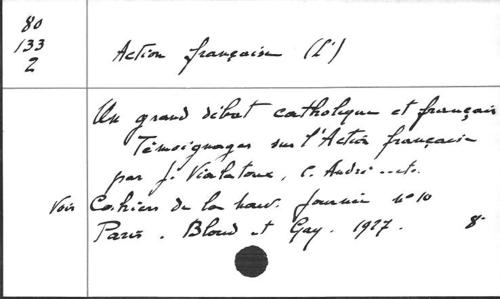 80
133
2
Action française (L')
Un grand débat catholique et français
Témoignages sur l'Action française
par J. Vialatoux, C. André ... etc.
Voir Cahiers de la nouv. Journée n° 10
Paris. Bloud et Gay. 1927. 8°